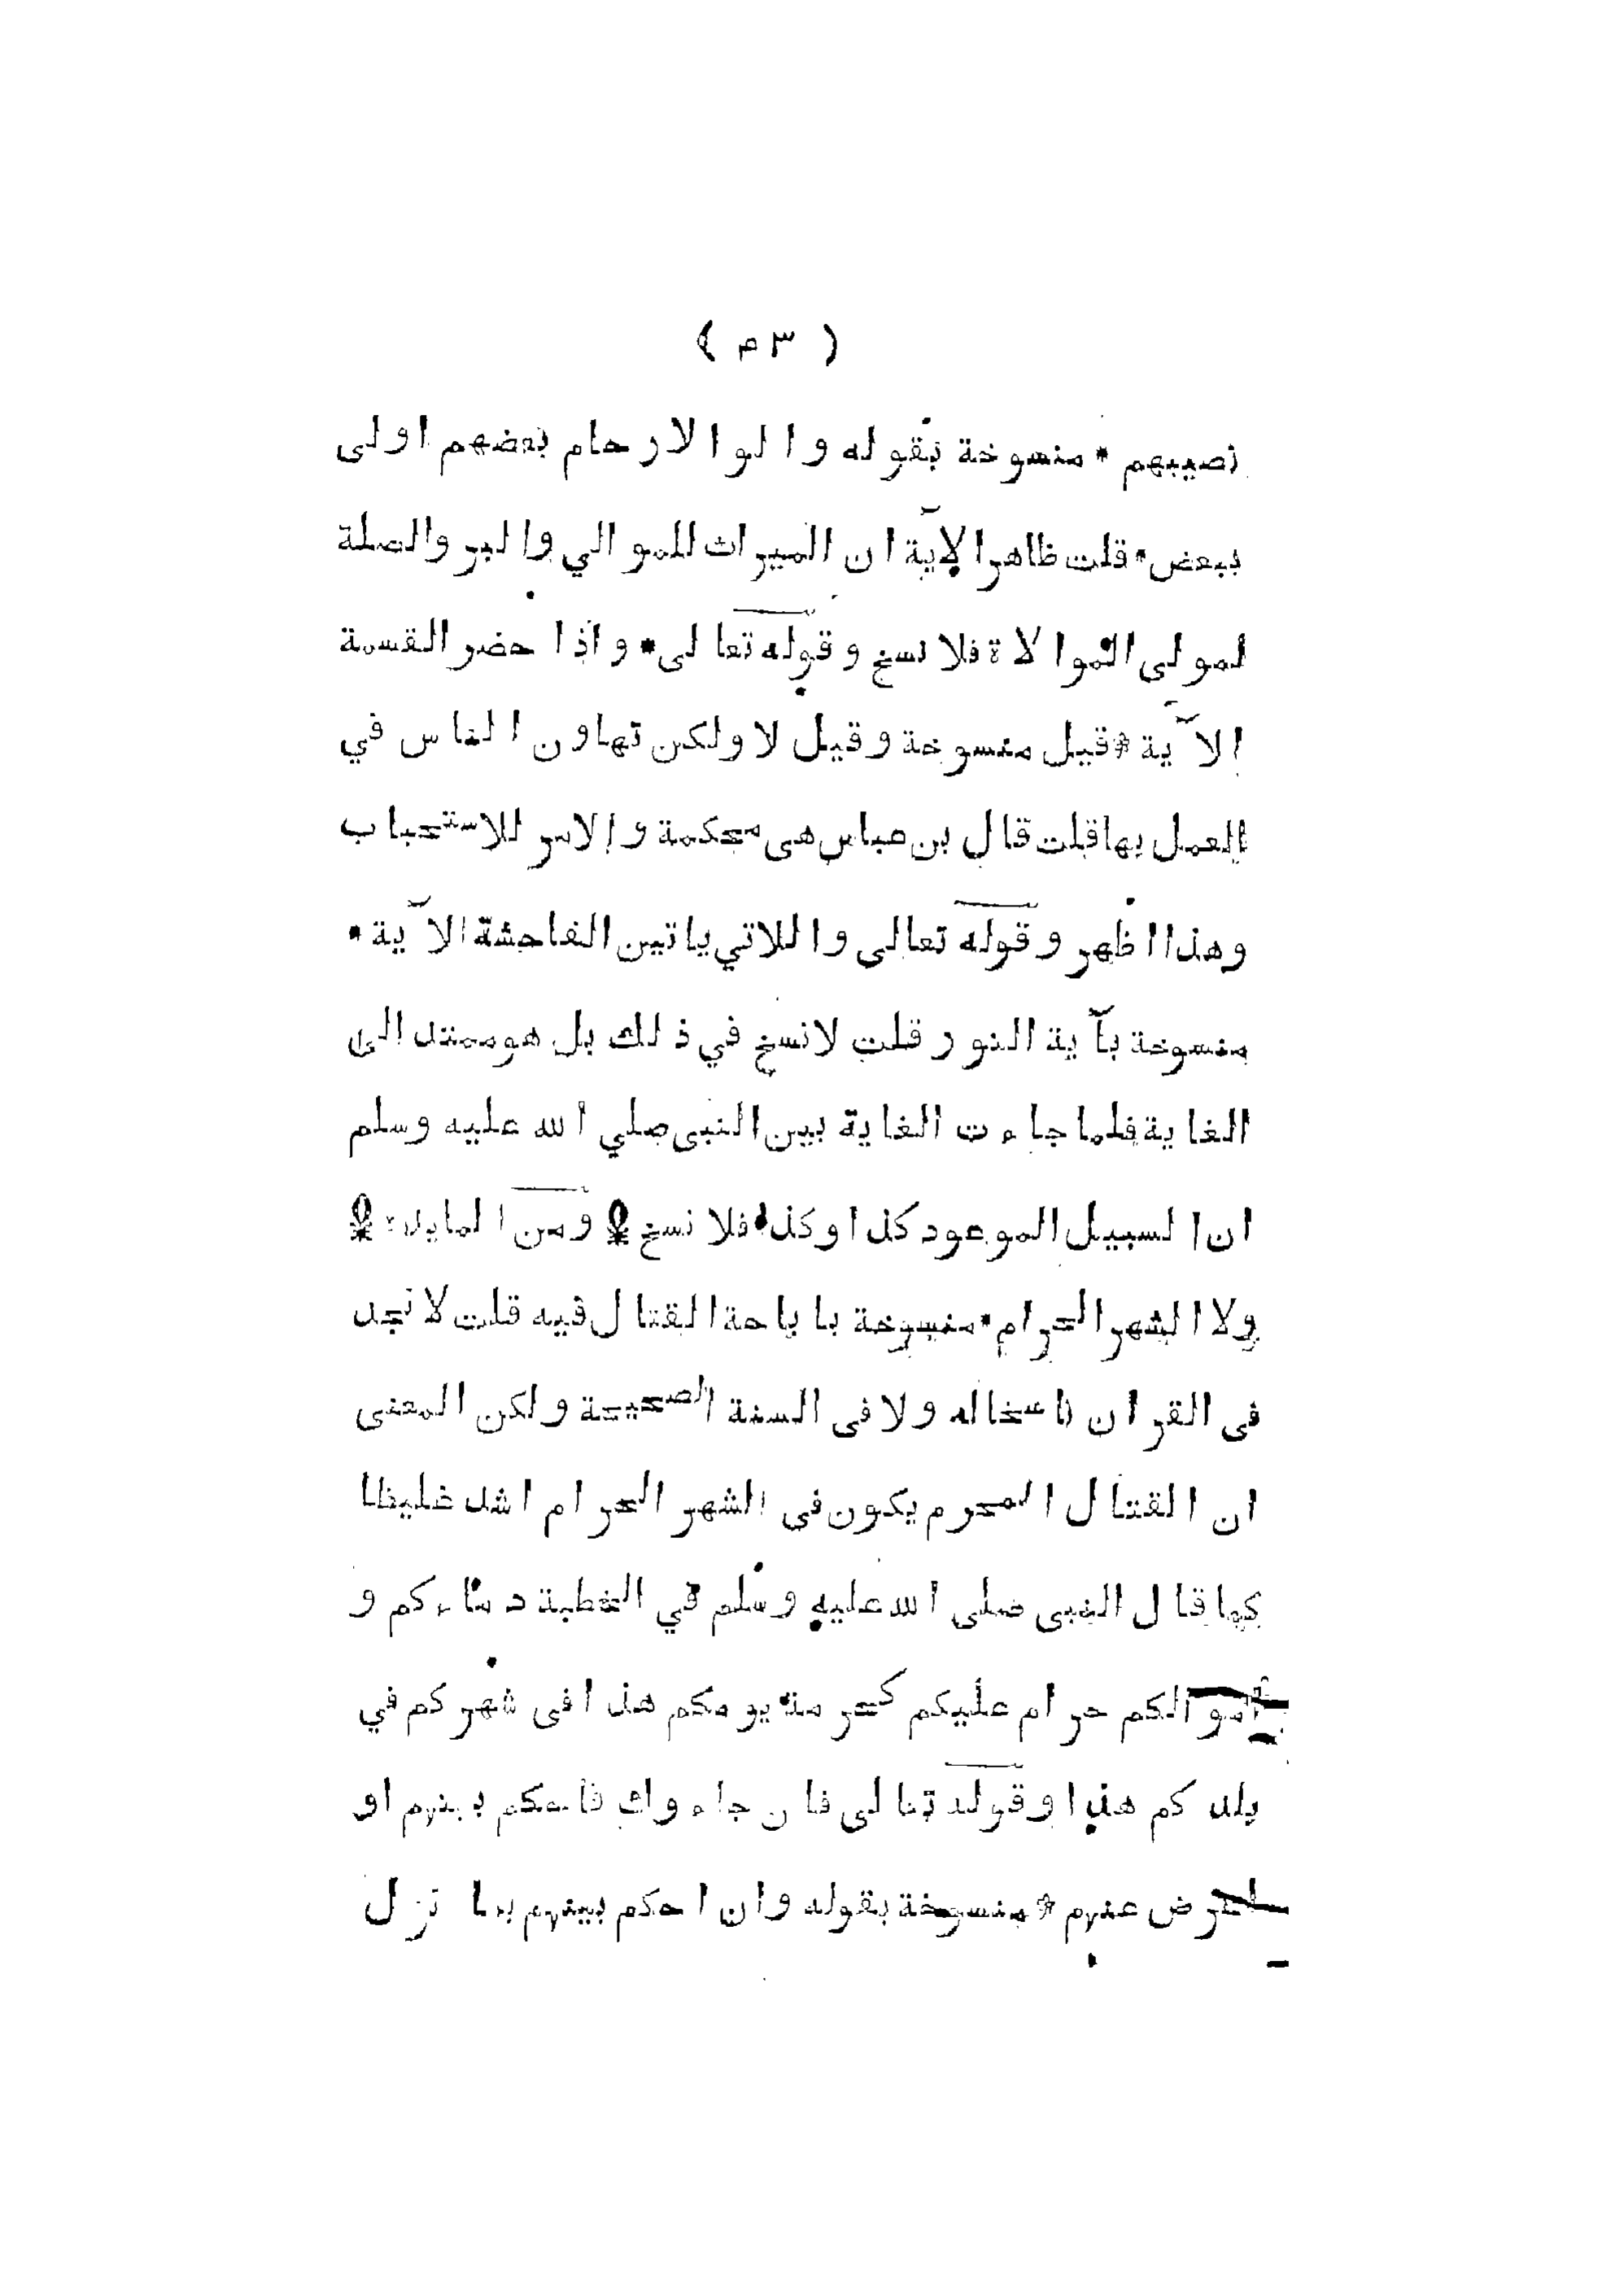 ( ٣٥ )
نصيبهم * منسوخة بقوله والوا الارحام بعضهم اولى
ببعض * قلت ظاهرا لآية ان الميراث للموالي والبر والصلة
لمولى الموالاة فلا نسخ وقوله تعالى * واذا حضر القسمة
الآية * قيل منسوخة وقيل لا ولكن تهاون الناس في
العمل بها قلت قال بن عباس هى محكمة والامر للاستحباب
وهذا اظهر وقوله تعالى واللاتي ياتين الفاحشة الآية *
منسوخة بآية النور قلت لانسخ في ذلك بل هو ممتد الى
الغاية فلما جاءت الغاية بين النبى صلي الله عليه وسلم
ان السبيل الموعود كذا وكذا فلا نسخ ومن المايدة
ولا الشهر الحرام * منسوخة باباحة القتال فيه قلت لا نجد
فى القران ناسخا له ولا فى السنة الصحيحة ولكن المعنى
ان القتال المحرم يكون فى الشهر الحرام اشد غليظا
كما قال النبى صلى الله عليه وسلم في الخطبة دماءكم و
اموالكم حرام عليكم كحرمة يومكم هذا فى شهركم في
بلدكم هذا وقوله تعالى فان جاءوك فاحكم بينهم او
اعرض عنهم * منسوخة بقوله وان احكم بينهم بما نزل